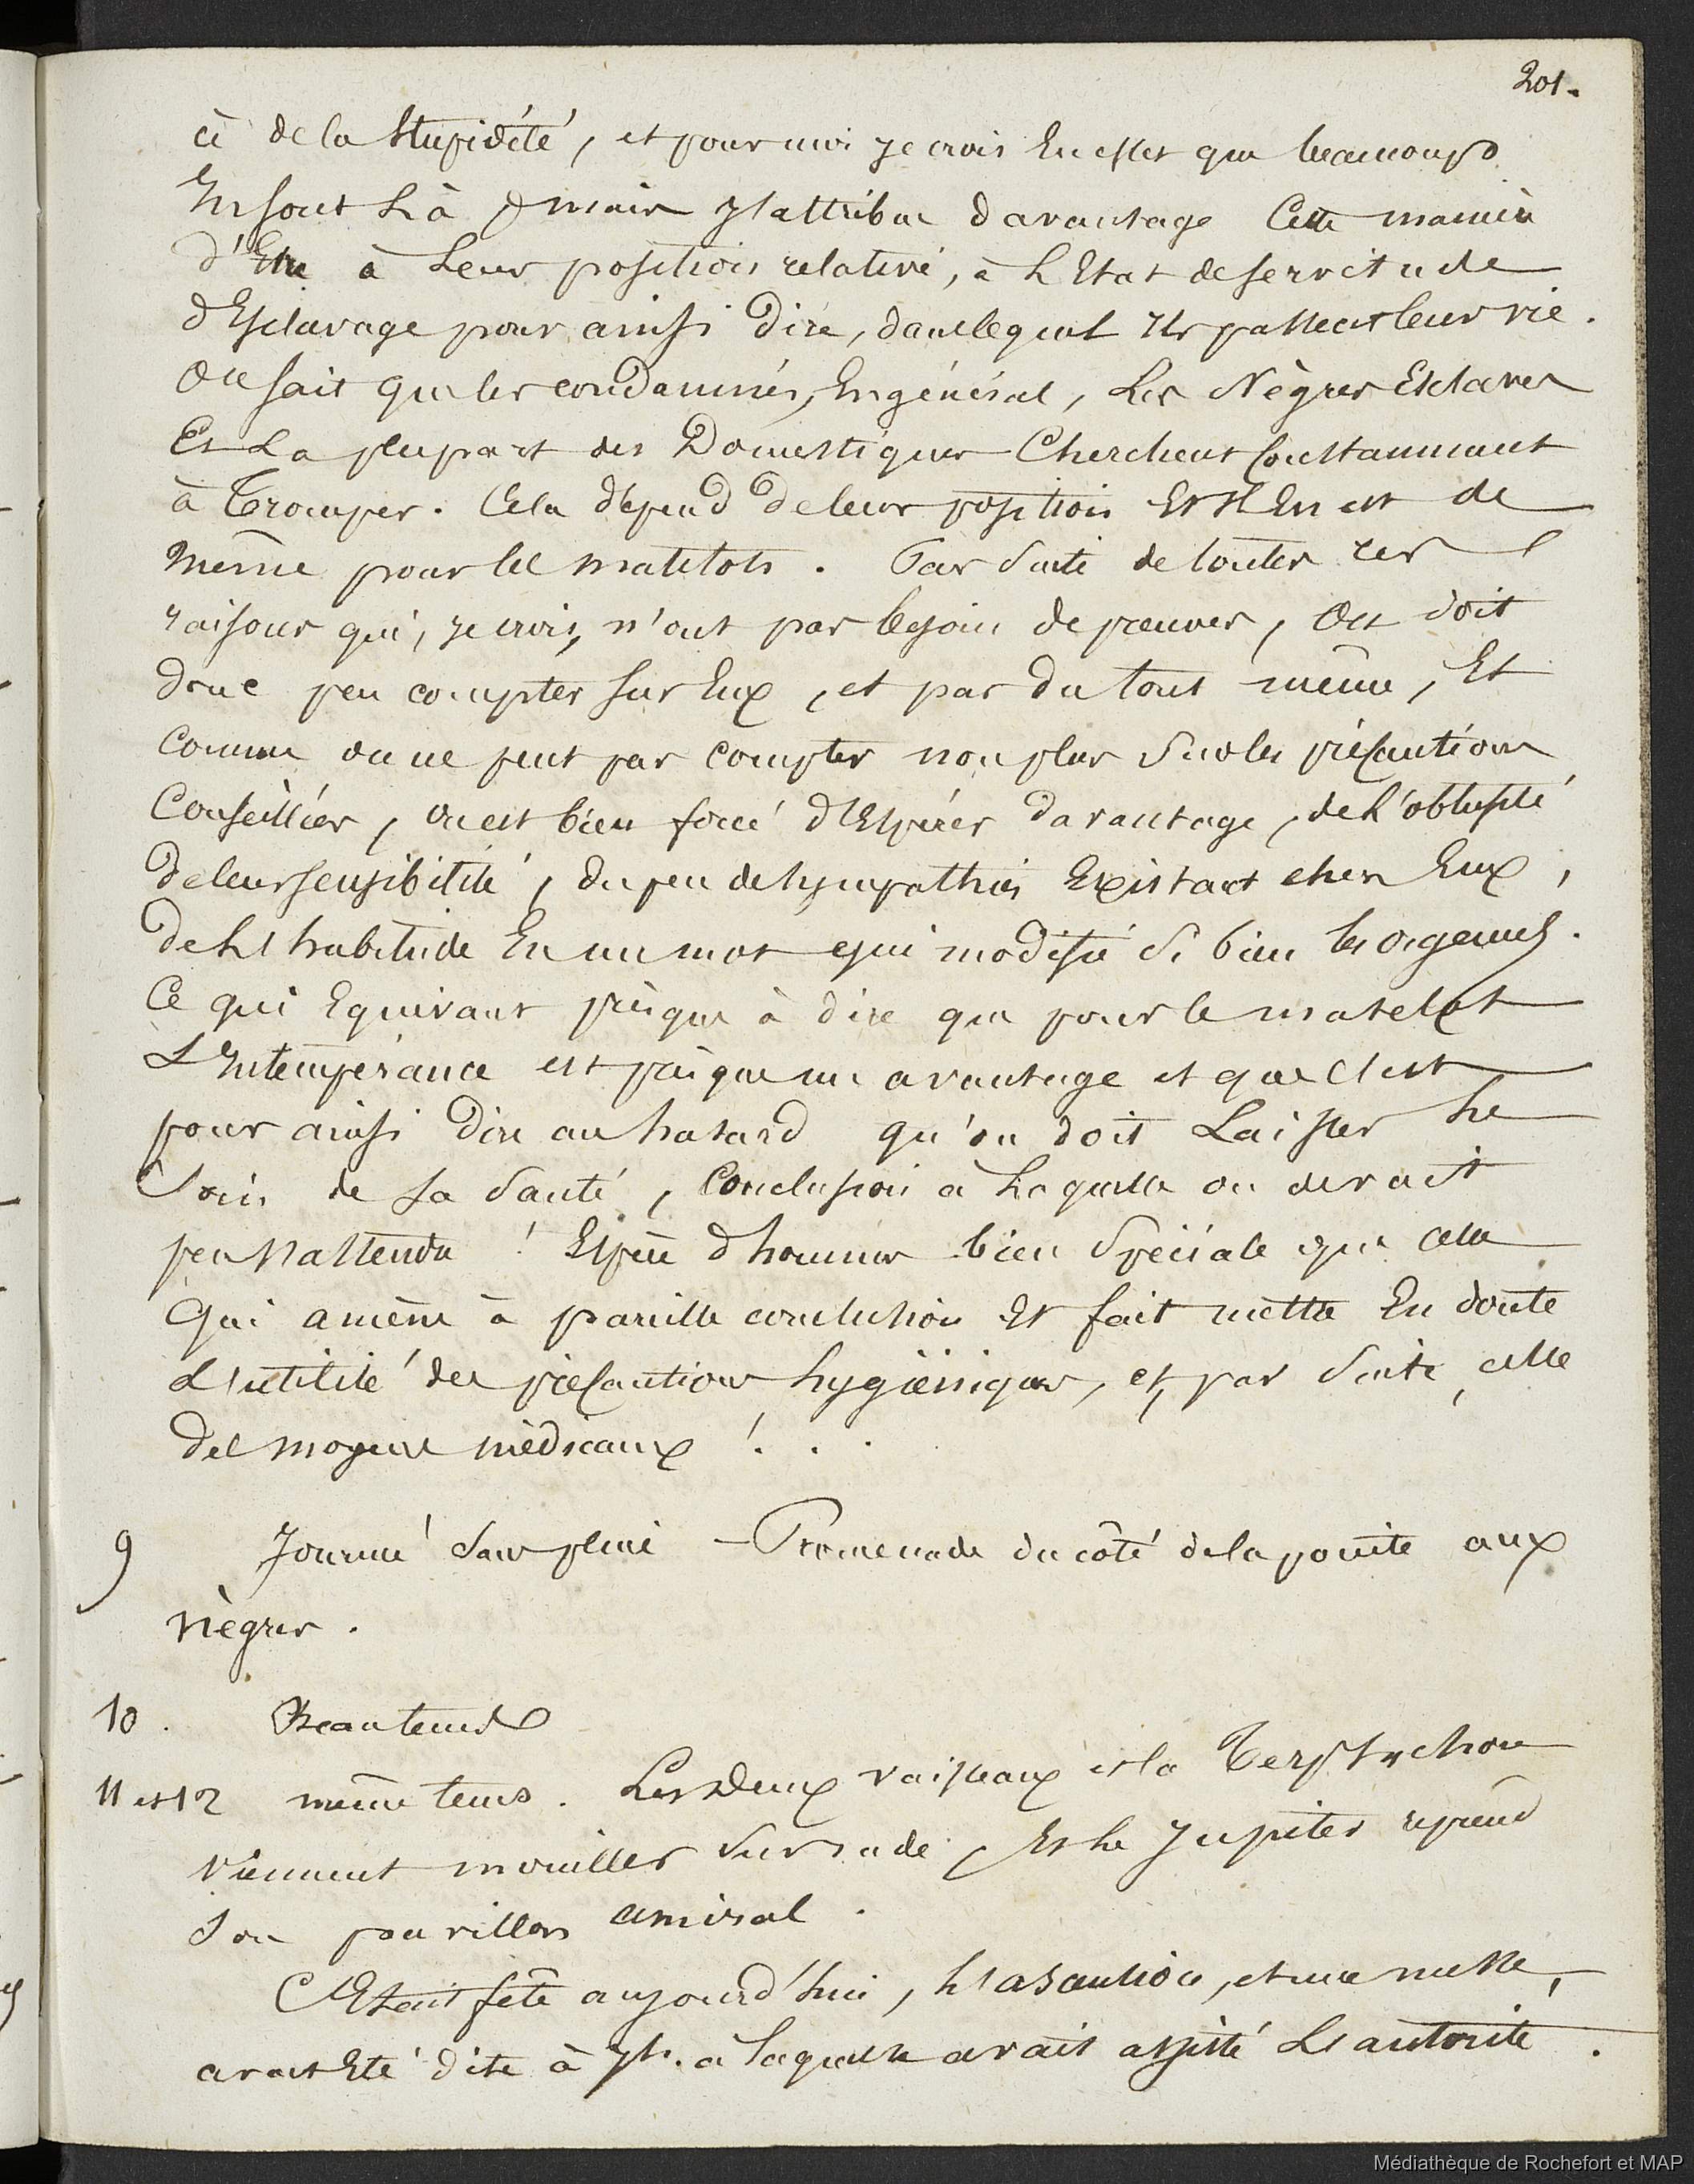 201.
à de la stupidité, et pour moi je crois En effet que beaucoup
En sont Là ; mais J'attribue davantage Cette manière
d'Etre à Leur position relative, à L'Etat de servitude
d'Esclavage pour ainsi Dire, dans lequel Ils passent leur vie.
On sait que les condamnés, En général, Les Nègres Esclaves
Et La plupart des Domestiques Cherchent Constamment
à Tromper. Cela dépend de leur position Et Il En est de
même pour les matelots. Par Suite de toutes ces
raisons qui, je crois, n'ont pas besoin de preuves, On doit
donc peu compter sur Eux, et pas du tout même, Et
Comme on ne peut pas Compter non plus Sur les précautions
Conseillées, on est bien forcé d'Espérer davantage, de L'
de leur sensibilité, du peu de sympathies Existant chez Eux,
de L'habitude En un mot qui modifie Si bien les organes.
Ce qui Equivaut presque à dire que pour le matelot
L'Intempérance est presque un avantage et que C'est
pour ainsi Dire au hasard qu'on doit Laisser Le
Soin de sa Santé, Conclusion à Laquelle on devait
peu s'attendre ! Espèce d'hommes bien Spéciale que celle
Qui amène à pareille conclusion Et fait mettre En doute
L'utilité des précautions hygiéniques, et, par Suite, celle
des moyens médicaux ! . .
9 Journée Sans pluie – Promenade du côté de la pointe aux
nègres.
10. Beau tems
11 et 12 même tems. Les Deux vaisseaux et la Terpsichore
viennent mouiller Sur rade, Et Le Jupiter reprend
Son pavillon amiral.
C'Etait fête aujourd'hui, L'ascention, et une messe,
avait Eté dite à 7h. à laquelle avait assisté L'autorité.